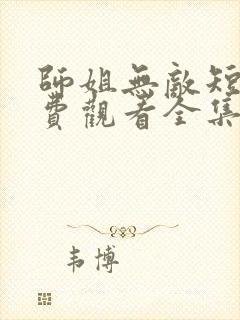 師姐無敵短
費觀看全集
韦博